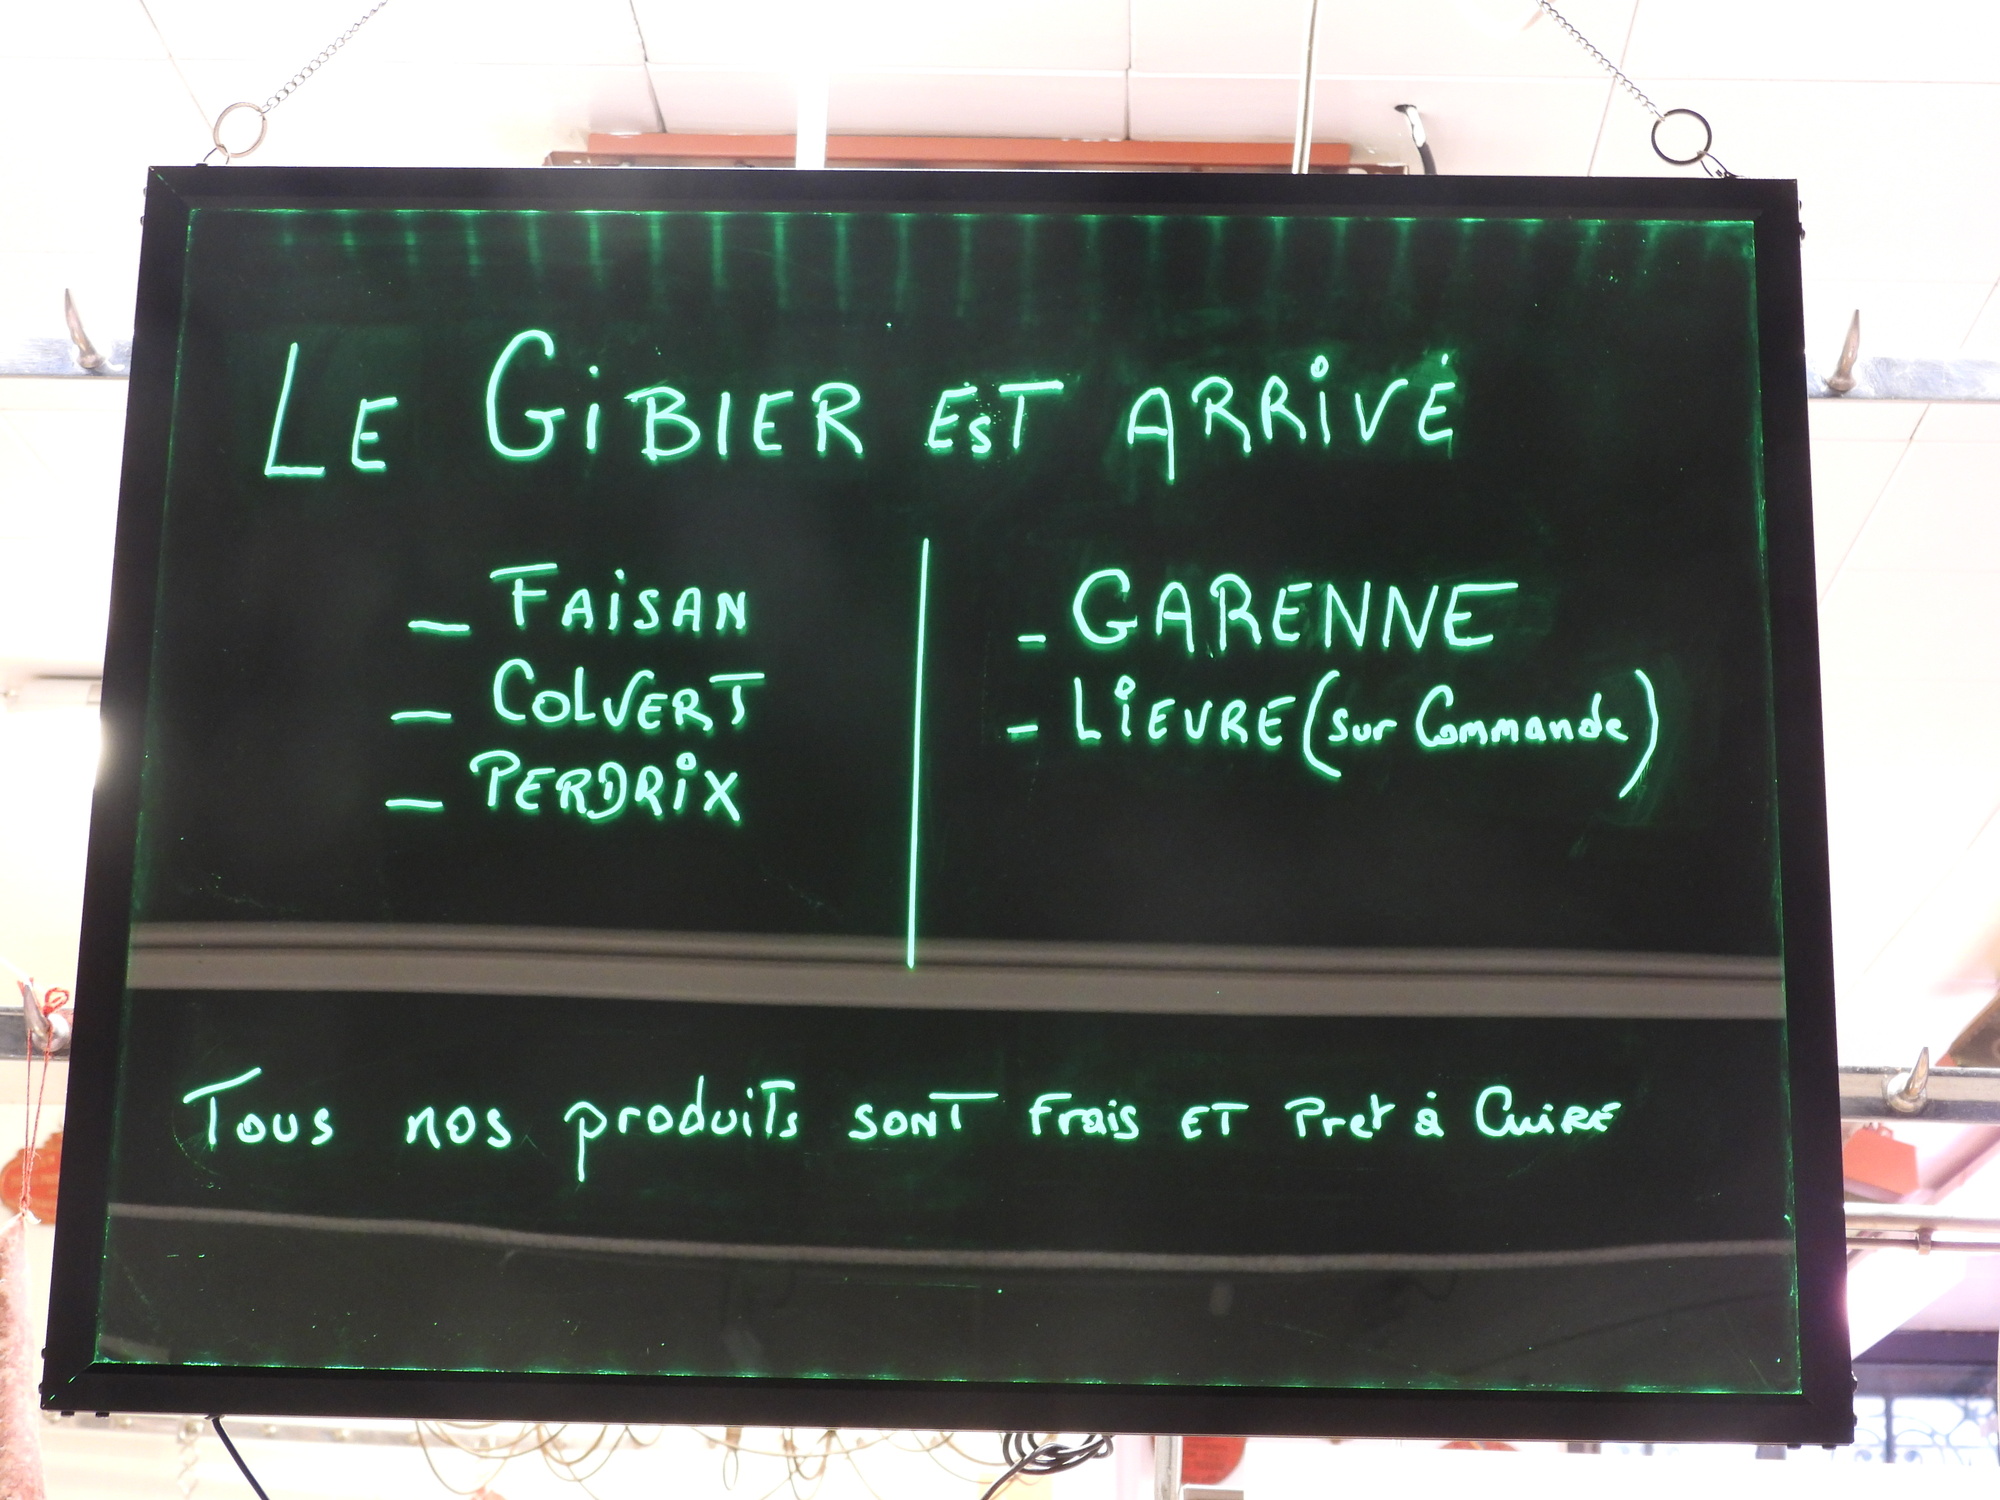 LE GiBIER EST ARRiVÉ
_ FAiSAN
_ COLVERT
_ PERDRiX
- GARENNE
- LiEVRE (sur Commande)
Tous nos produits sont Frais ET Pret à CuiRE